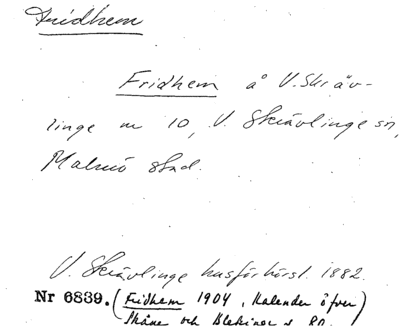 Fridhem
Fridhem å V. Skräv-
linge nr 10, V. Skrävlinge sn,
Malmö stad.
V. Skrävlinge husförhörsl. 1882.
Nr 6839. (Fridhem 1904, Kalender öfver
Skåne och Blekinge s. 80.